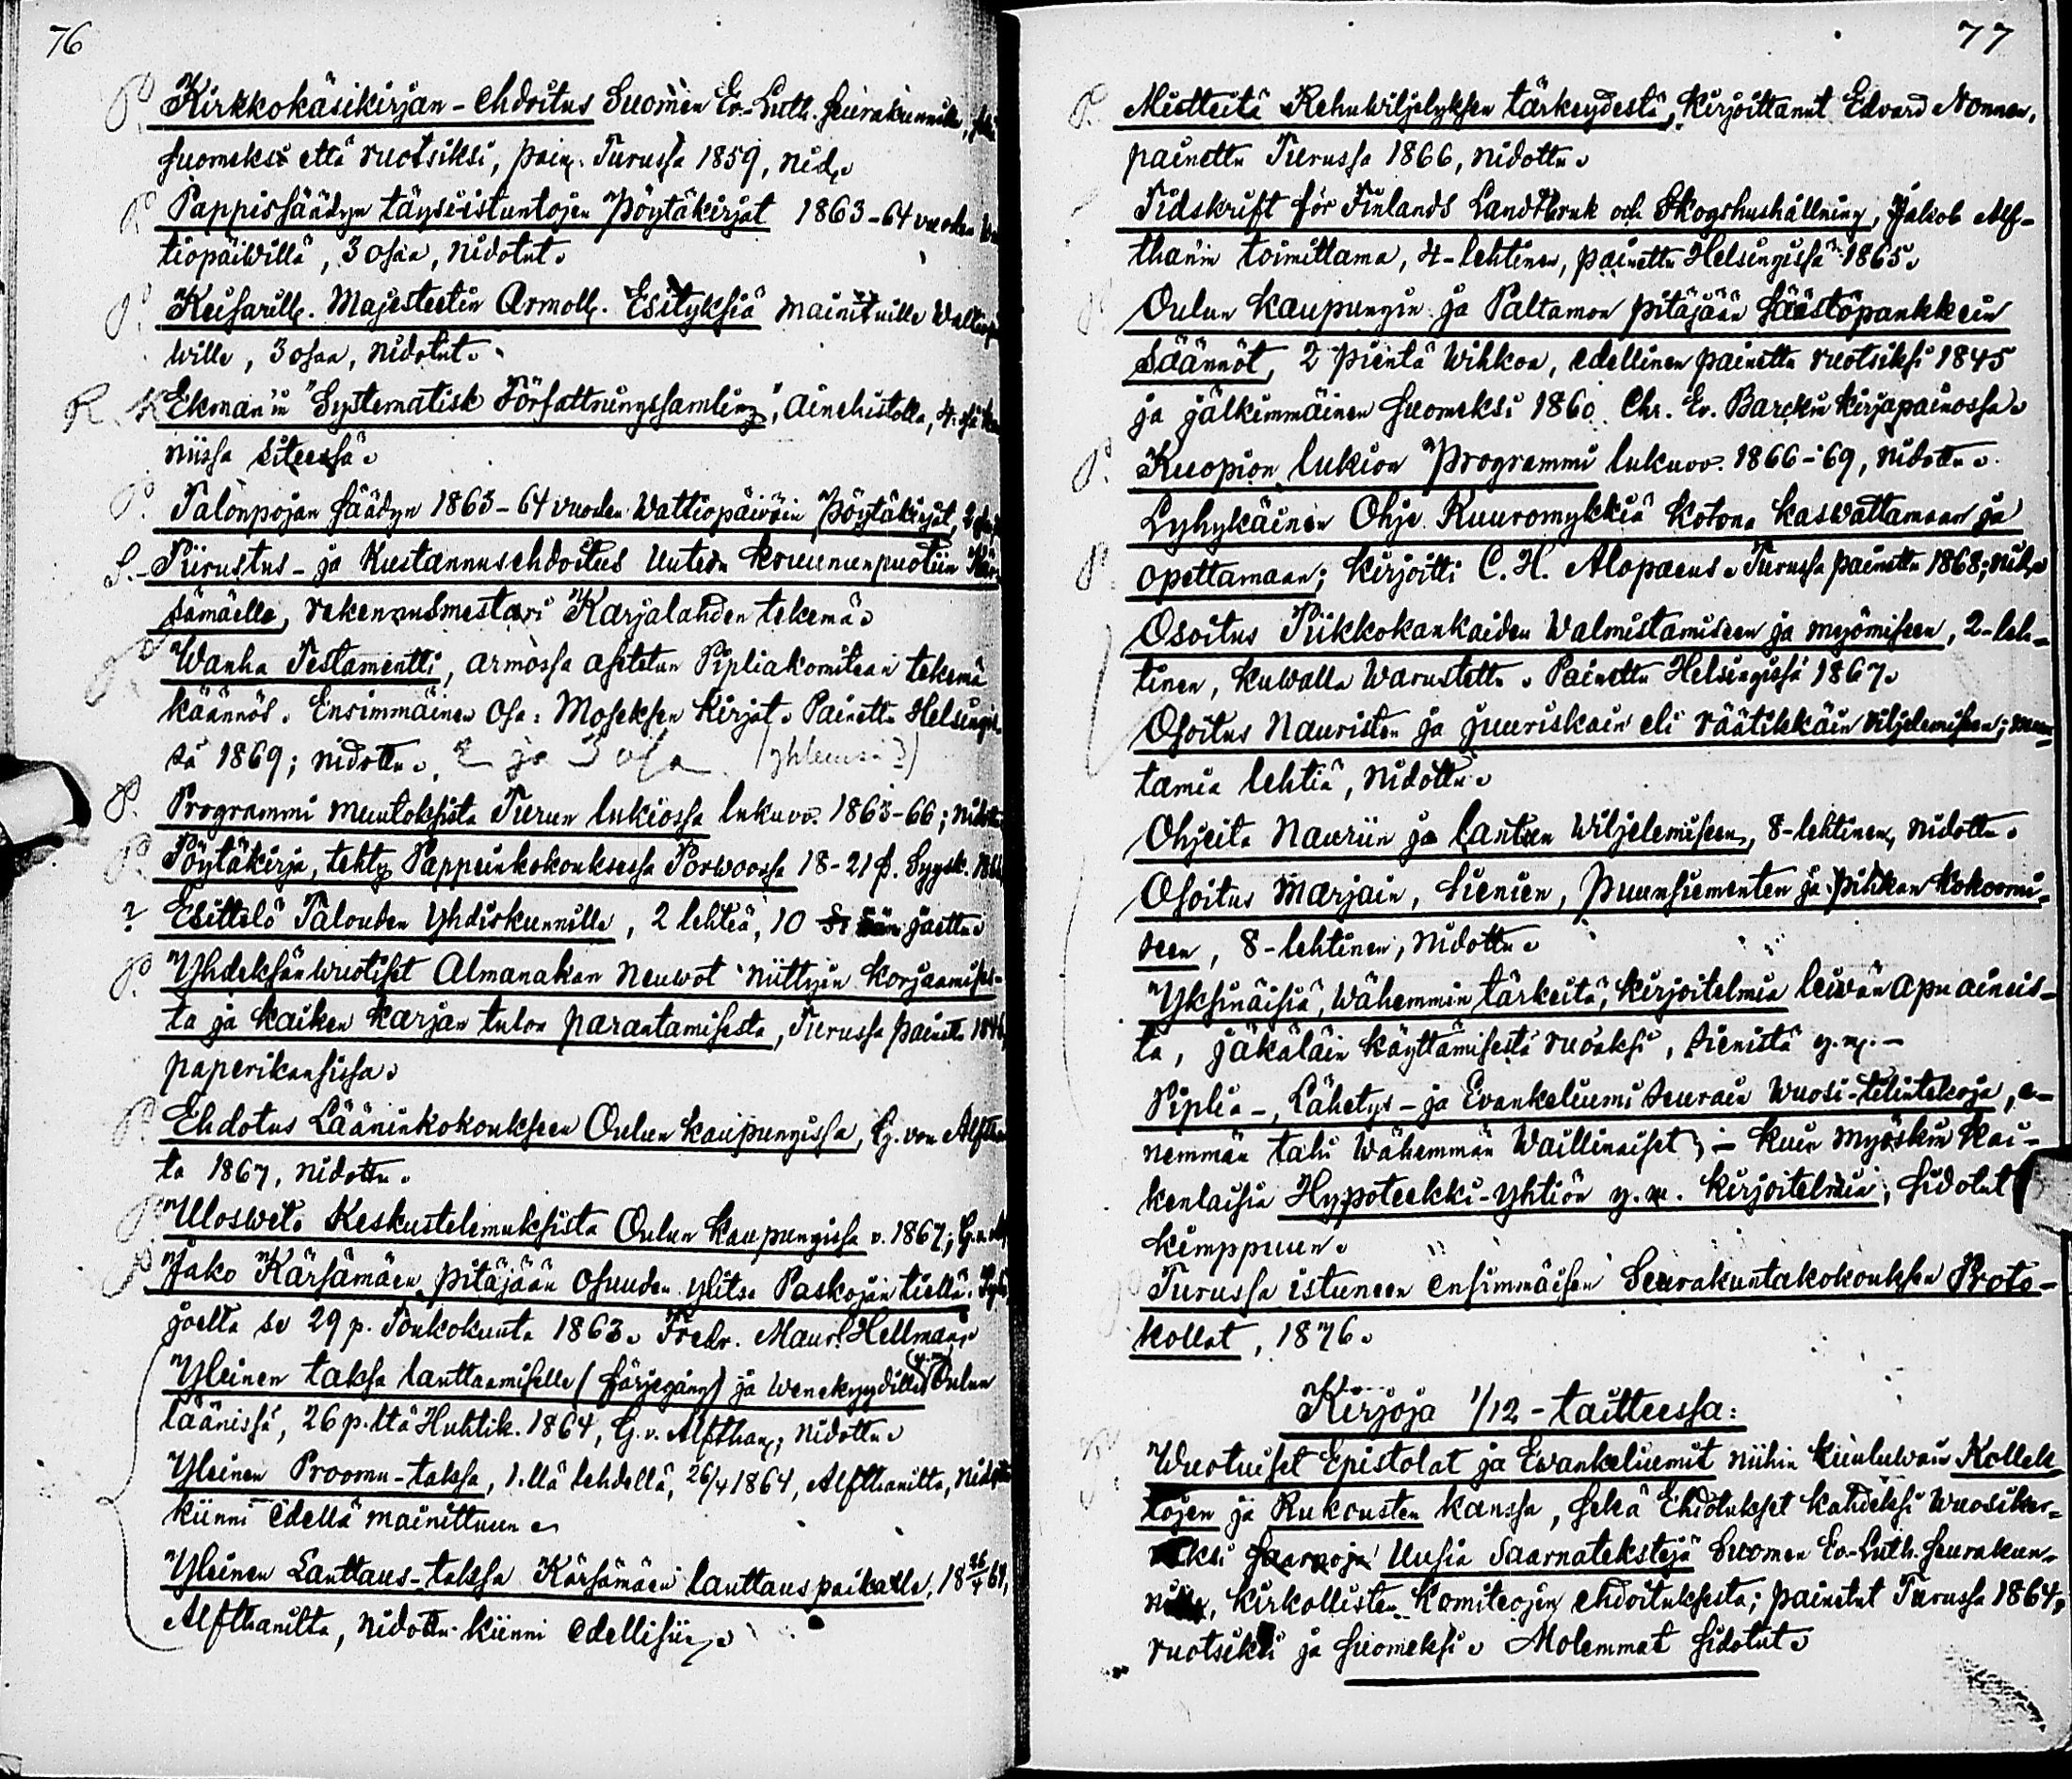 76
P. Kirkkokäsikirjan-ehdoitus Suomen Ev.-Luth. Seurakunnille,
suomeksi että ruotsiksi, pain. Turussa 1859, nid.
P. Pappissäädyn täysi-istuntojen Pöytäkirjat 1863-64 vuoden
tiopäiwillä, 3 osaa, nidotut.
P. Keisarill. Majesteetin Armoll. Esityksiä mainituille
wille, 3 osaa, nidotut.
R. K Ekman'in "Systematisk Författningssamling", ainehistolla, 4:
niissa siteessä.
P. Talonpojan säädyn 1863-64 vuoden Waltiopäiwäin Pöytäkirjat,
S. Piirustus- ja Kustannusehdoitus Uuteen kruununpuotiin Kär-
sämäelle, rakennusmestari Karjalahden tekemä.
P. Wanha Testamentti, armossa asetetun Pipliakomitean tekemä
käännös. Ensimmäinen Osa: Moseksen Kirjat. Painettu Helsingis-
sä 1869; nidottu. 2 ja 3 osa (yhteensä 3)
P. Programmi muutoksista Turun lukiossa lukuvv. 1863-66;
P. Pöytäkirja, tehty Pappeinkokouksessa Porwoossa 18-21 p. Syysk.
? Esittelö Talouden Yhdiskunnille, 2 lehteä, 10 jaettu.
P. Yhdeksänwuotiset Almanakan Neuwot niittyin korjaamises-
ta ja kaiken karjan tulon parantamisesta, Turussa painettu 1846,
paperikansissa.
P. Ehdotus Lääninkokoukseen Oulun kaupungissa, G. von
ta 1867, nidottu.
P. Uloswetö Keskustelemuksista Oulun Kaupungissa v. 1867;
P. Jako Kärsämäen pitäjään Osuuden ylitse Paskojan tiellä.
joella se 29 p. Toukokuuta 1863. Fredr. Maur. Hellman.
Yleinen taksa lauttaamiselle (färjegång) ja wenekyydille y.m. Oulun
läänissä, 26 p:ltä Huhtik. 1864, G. v. Alfthan; nidottu.
Yleinen Proomu-taksa, 1:llä lehdellä, 26/4 1864, Alfthanilta,
kiinni edellä mainittuun.
Yleinen Lauttaus-taksa Kärsämäen lauttauspaikalle, 18 26/4 64,
Alfthanilta, nidottu kiinni edellisiin.
77
P. Mietteitä Rehuwiljelyksen tärkeydestä, Kirjoittanut Edvard Nonnen,
painettu Turussa 1866, nidottu.
Tidskrift för Finlands Landtbruk och Skogshushållning, Jakob Alf-
than'in toimittama, 4-lehtinen, painettu Helsingissä 1865.
P. Oulun Kaupungin ja Paltamon pitäjään Säästöpankkein
Säännöt, 2 pientä wihkoa, edellinen painettu ruotsiksi 1845
ja jälkimmäinen suomeksi 1860. Chr. Ev. Barckin kirjapainossa.
P. Kuopion lukion Programmi lukuvv. 1866-69, nidottu.
Lyhykäinen Ohje Kuuromykkiä kotona kaswattamaan ja
P. opettamaan; Kirjoitti C. H. Alopaeus. Turussa painettu 1868; nid.
Osoitus Piikkokankaiden Walmistamiseen ja myömiseen, 2-leh-
tinen, kuwalla warustettu. Painettu Helsingissä 1867.
Osoitus Nauristen ja juuriskain eli räätikkäin wiljelemiseen; muu-
tamia lehtiä, nidottu.
Ohjeita Nauriin ja lantun Wiljelemiseen, 8-lehtinen, nidottu.
Osoitus Marjain, Sienien, puunsiementen ja pihkan kokoomi-
seen, 8-lehtinen, nidottu.
Yksinäisiä, wähemmin tärkeitä, kirjoitelmia leiwän apuaineis-
ta, jäkäläin käyttämisestä ruoaksi, sienistä y.m. —
Piplia-, Lähetys- ja Evankeliumi seurain Wuosi-tilintekoja, e-
nemmän tahi wähemmän Waillinaiset; — kuin myöskin kai-
kenlaisia Hypoteekki-yhtiön y.m. kirjoitelmia; sidotut
kimppuun.
Turussa istuneen ensimmäisen Seurakuntakokouksen Proto-
kollat, 1876.
Kirjoja 1/12-taitteessa:
Wuotuiset Epistolat ja Ewankeliumit niihin kuuluwain Kollek-
tojen ja Rukousten kanssa, sekä Ehdotukset kahdeksi wuosiker-
raksi saarnoja Uusia Saarnatekstejä Suomen Ev.-Luth. seurakun-
nille, Kirkollisten Komiteojen ehdoituksesta; painetut Turussa 1864,
ruotsiksi ja suomeksi. Molemmat sidotut.